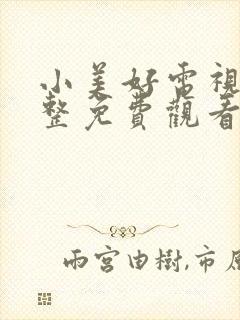 小美好電視
整免費觀看
雨宮由樹,市原